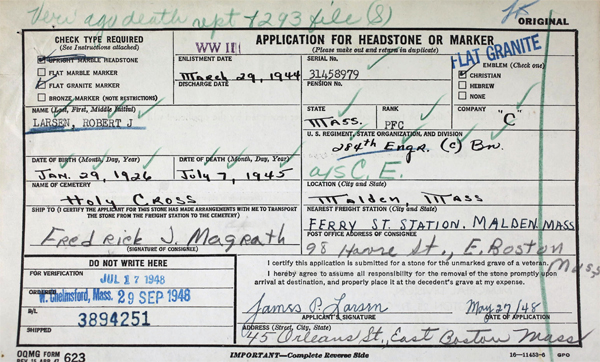 Veri ags death rept 1293 file (S)
ORIGINAL
CHECK TYPE REQUIRED
(See Instructions attached)
UPRIGHT MARBLE HEADSTONE
FLAT MARBLE MARKER
FLAT GRANITE MARKER
BRONZE MARKER (NOTE RESTRICTIONS)
WW II
APPLICATION FOR HEADSTONE OR MARKER
(Please make out and return in duplicate)
ENLISTMENT DATE
March 29, 1944
DISCHARGE DATE
SERIAL No.
31458979
PENSION No.
FLAT GRANITE
EMBLEM (Check one)
CHRISTIAN
HEBREW
NONE
NAME (Last, First, Middle Initial)
LARSEN, ROBERT J
STATE
MASS.
RANK
PFC
COMPANY
"C"
U. S. REGIMENT, STATE ORGANIZATION, AND DIVISION
284th Engr. (C) Bn.
a/s C. E.
DATE OF BIRTH (Month, Day, Year)
JAN. 29, 1926
DATE OF DEATH (Month, Day, Year)
July 7, 1945
NAME OF CEMETERY
Holy Cross
LOCATION (City and State)
Malden, Mass
SHIP TO (I CERTIFY THE APPLICANT FOR THIS STONE HAS MADE ARRANGEMENTS WITH ME TO TRANSPORT
THE STONE FROM THE FREIGHT STATION TO THE CEMETERY)
Fredrick J. Magrath
(SIGNATURE OF CONSIGNEE)
NEAREST FREIGHT STATION (City and State)
FERRY ST. STATION, MALDEN MASS
POST OFFICE ADDRESS OF CONSIGNEE
98 Havre St., E. Boston Mass,
DO NOT WRITE HERE
FOR VERIFICATION
JUL 17 1948
ORDERED
W. Chelmsford, Mass. 29 SEP 1948
B/L
3894251
I certify this application is submitted for a stone for the unmarked grave of a veteran.
I hereby agree to assume all responsibility for the removal of the stone promptly upon
arrival at destination, and properly place it at the decedent's grave at my expense.
James P. Larsen
APPLICANT'S SIGNATURE
May 27/48
DATE OF APPLICATION
ADDRESS (Street, City, State)
45 Orleans St., East Boston Mass
OQMG FORM
623
IMPORTANT—Complete Reverse Side
16—11453-6 GPO